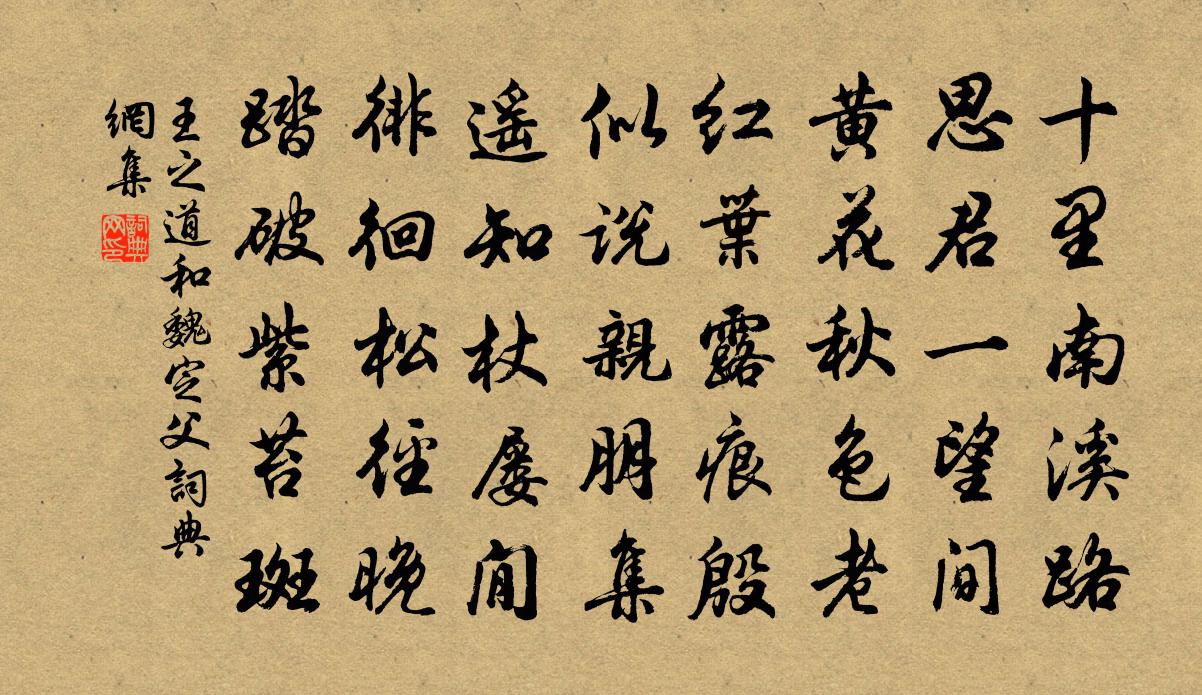 十里南溪路
思君一望间
黄花秋色老
红葉露痕殷
似説親朋集
遥知杖屡閒
徘徊松徑晚
踏破紫苔斑
王之道和魏定父詞典
網集
詞典
网印